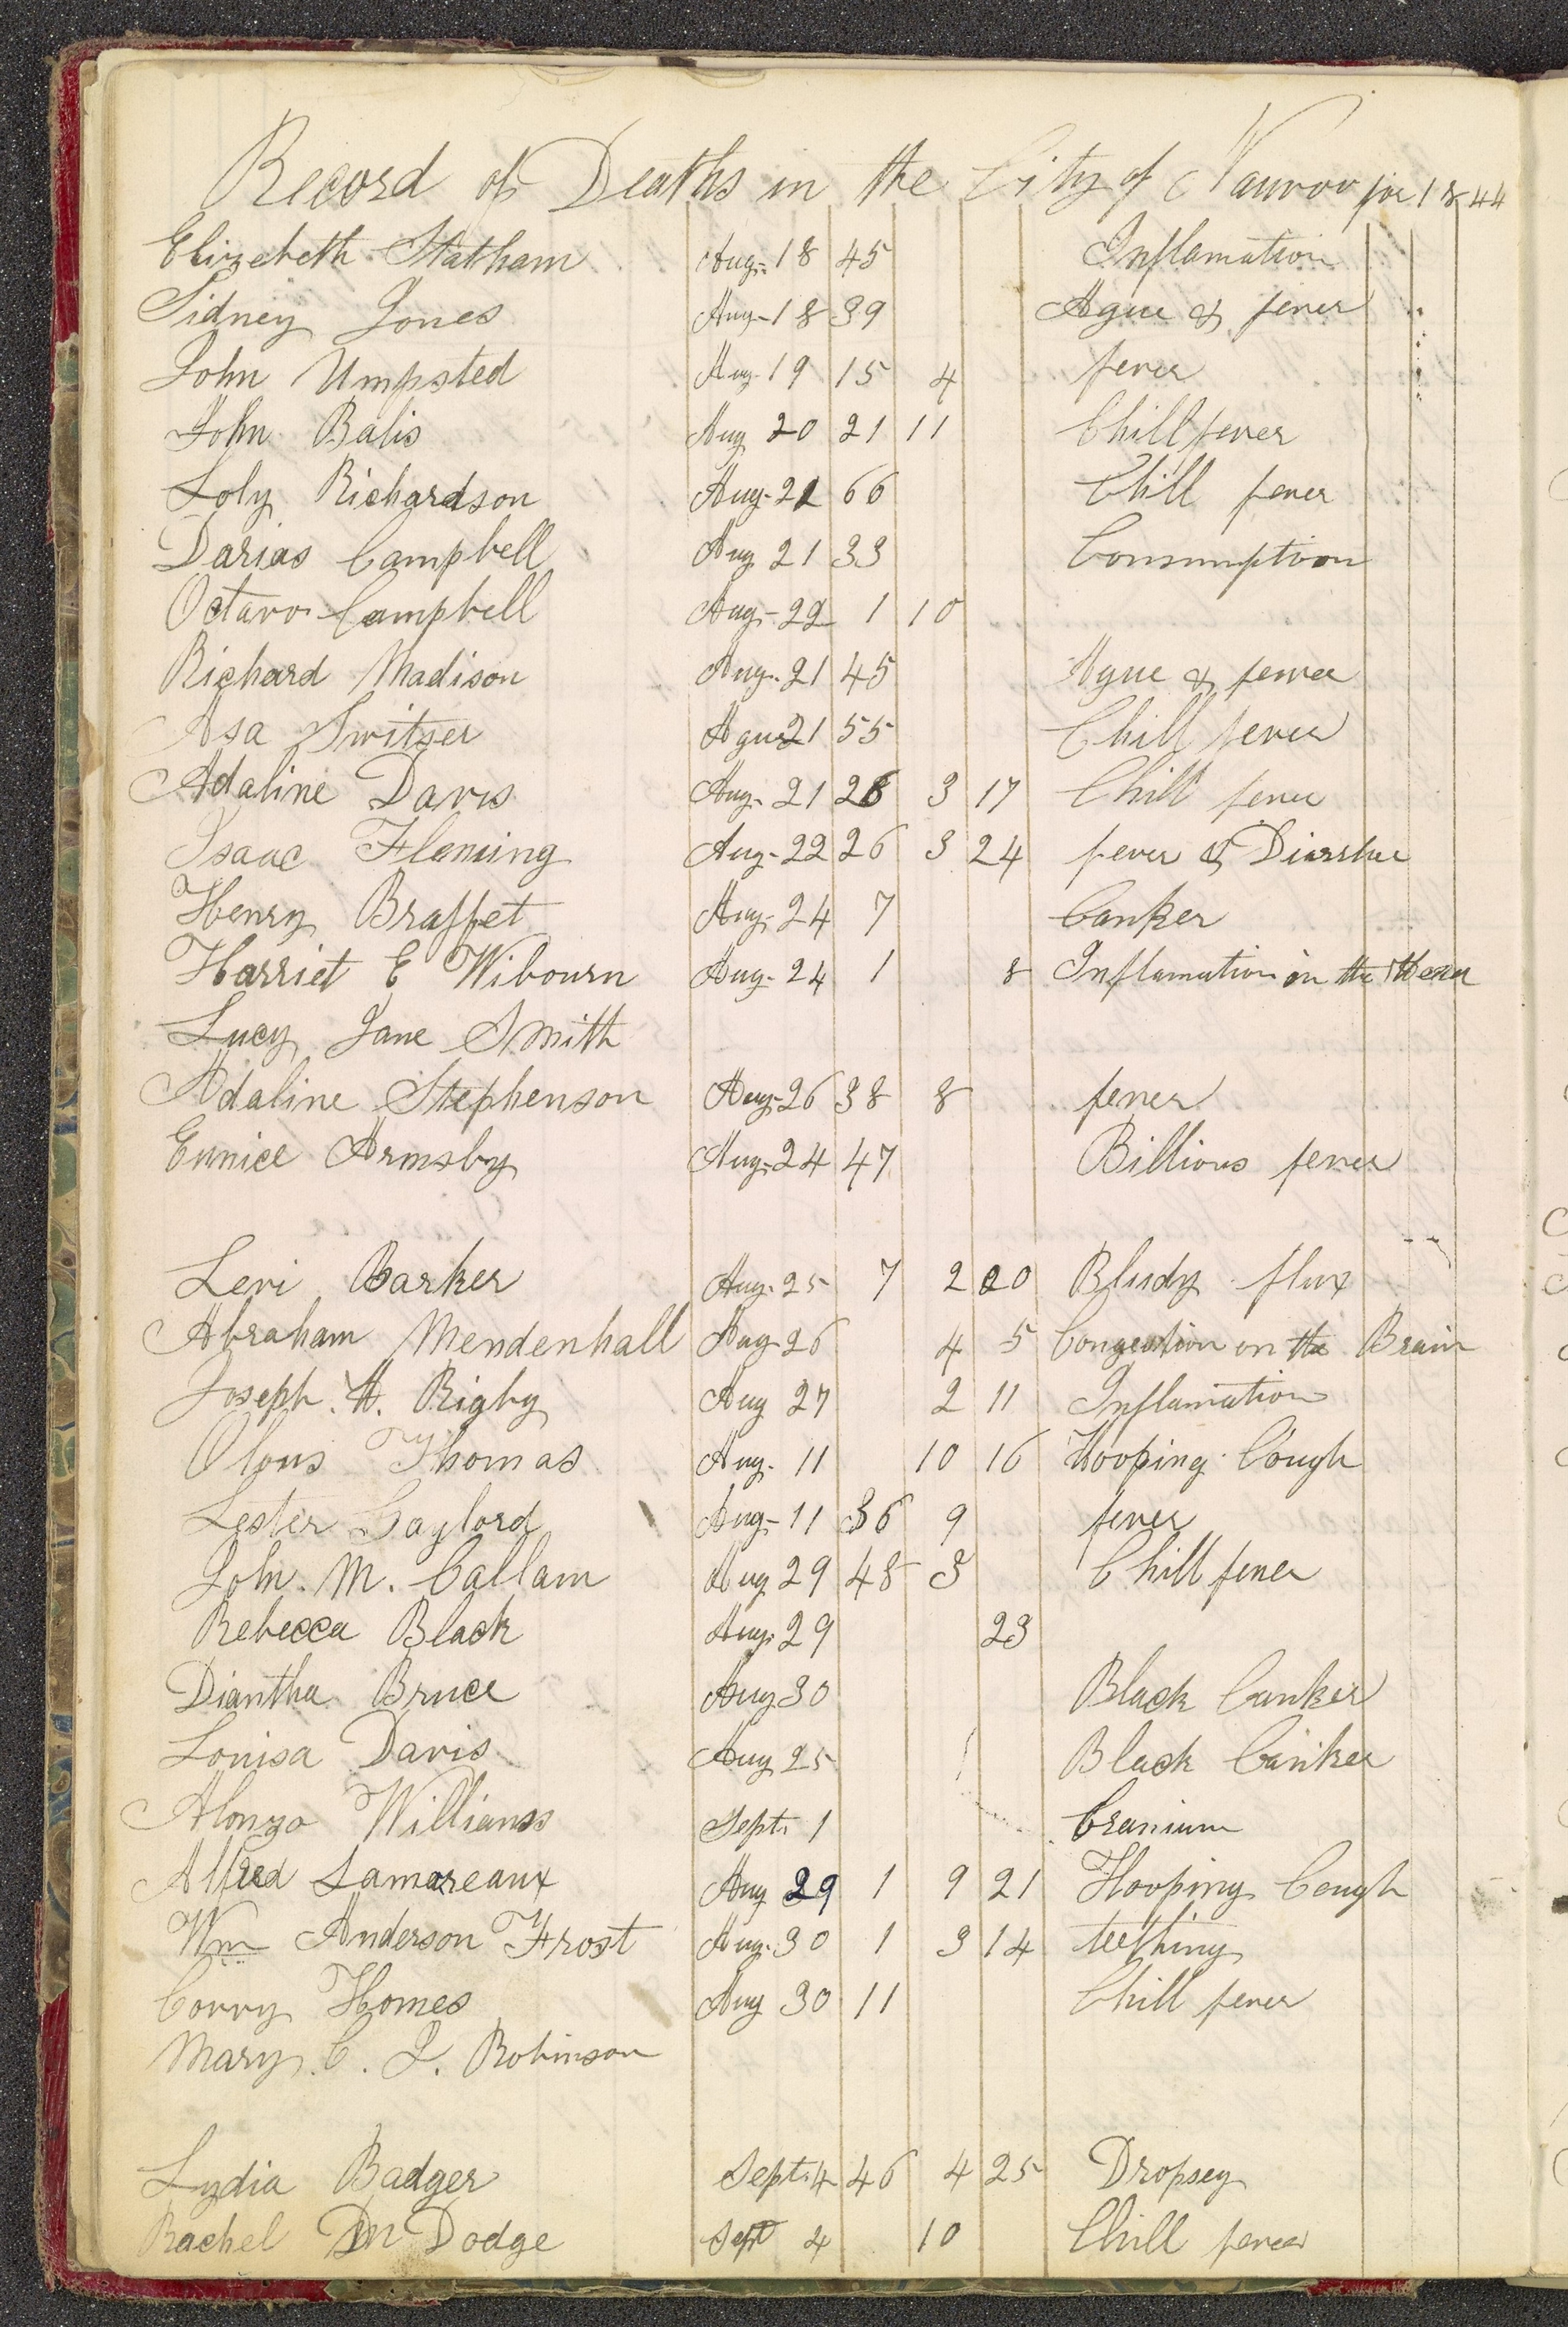 Record of Deaths in the City of Nauvoo for 1844
Elizebeth Statham Aug. 18 45 Inflamation
Sidney Jones Aug - 18 39 Ague & fever
John Umpsted Aug. 19 15 4 fever
John Balis Aug 20 21 11 Chill fever
Aug. 21 66 Chill fever
Richardson
Darias Campbell Aug 21 33 Consumption
Octavo Campbell Aug. 22 1 10
Richard Madison Aug. 21 45 Ague & fever
Asa Switser Ague 21 55 Chill fever
Adaline Davis Aug. 21 26 3 17 Chill fever
Isaac Fleming Aug - 22 26 3 24 fever & Diarrhue
Henry Braffet Aug. 24 7 Canker
Harriet E Wibourn Aug. 24 1 8 Inflamation in the Head
Lucy Jane Smith
Adaline Stephenson Aug. 26 38 8 fever
Eunice Armsby Aug. 24 47 Billious fever
Levi Barker Aug. 25 7 2 20 Bludy flux
Abraham Mendenhall Aug. 26 4 5 Congestion on the Brain
Joseph H. Rigby Aug 27 2 11 Inflamation
Olous Thomas Aug. 11 10 16 Hooping Cough
Lester Gaylord Aug - 11 36 9 fever
John. M. Callam Aug 29 48 3 Chill fever
Rebecca Black Aug. 29 23
Diantha Bruce Aug 30 Black Canker
Louisa Davis Aug 25 Black Canker
Alonzo Williams Sept. 1 Cranium
Alfred Lamoreaux Aug 29 1 9 21 Hooping Cough
Wm Anderson Frost Aug. 30 1 3 14 teething
Corry Homes Aug 30 11 Chill fever
Mary. C. J. Robinson
Lydia Badger Sept. 4 46 4 25 Dropsey
Rachel M Dodge Sept 4 10 Chill fever